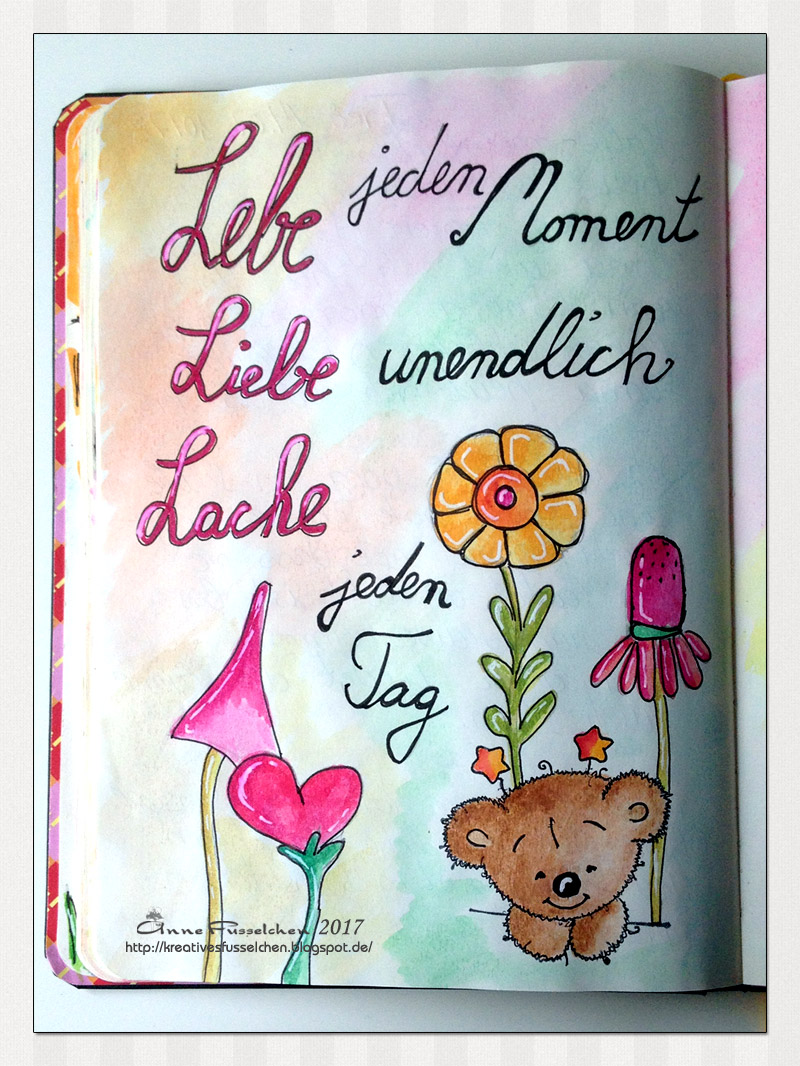 Lebe jeden Moment
Liebe unendlich
Lache
jeden
Tag
Anne Fusselchen 2017
http://kreativesfusselchen.blogspot.de/